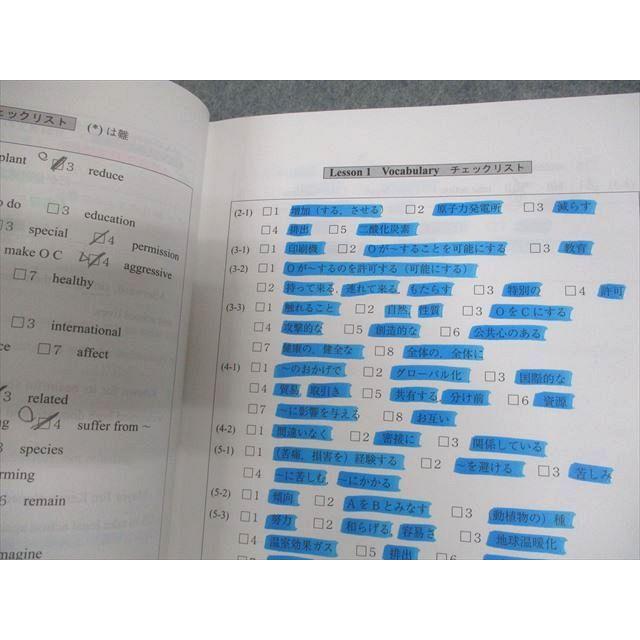 ェックリスト (*)は難
plant □3 reduce
o do □3 education
□3 special □4 permission
make O C □4 aggressive
□7 healthy
□3 international
ce □7 affect
3 related
ng □4 suffer from ～
□3 species
rming
6 remain
magine
Lesson 1 Vocabulary チェックリスト
(2-1) □1 増加(する，させる) □2 原子力発電所 □3 減らす
□4 排出 □5 二酸化炭素
(3-1) □1 印刷機 □2 Oが～することを可能にする □3 教育
(3-2) □1 Oが～するのを許可する(可能にする)
□2 持って来る，連れて来る，もたらす □3 特別の □4 許可
(3-3) □1 触れること □2 自然，性質 □3 OをCにする
□4 攻撃的な □5 創造的な □6 公共心のある
□7 健康の，健全な □8 全体の，全体に
(4-1) □1 ～のおかげで □2 グローバル化 □3 国際的な
□4 貿易，取引き □5 共有する，分け前 □6 資源
□7 ～に影響を与える □8 お互い
(4-2) □1 間違いなく □2 密接に □3 関係している
(5-1) □1 (苦痛，損害を)経験する □2 ～を避ける □3 苦しみ
□4 ～に苦しむ，～にかかる
(5-2) □1 傾向 □2 AをBとみなす □3 (動植物の)種
(5-3) □1 努力 □2 和らげる，容易さ □3 地球温暖化
□4 温室効果ガス □5 排出